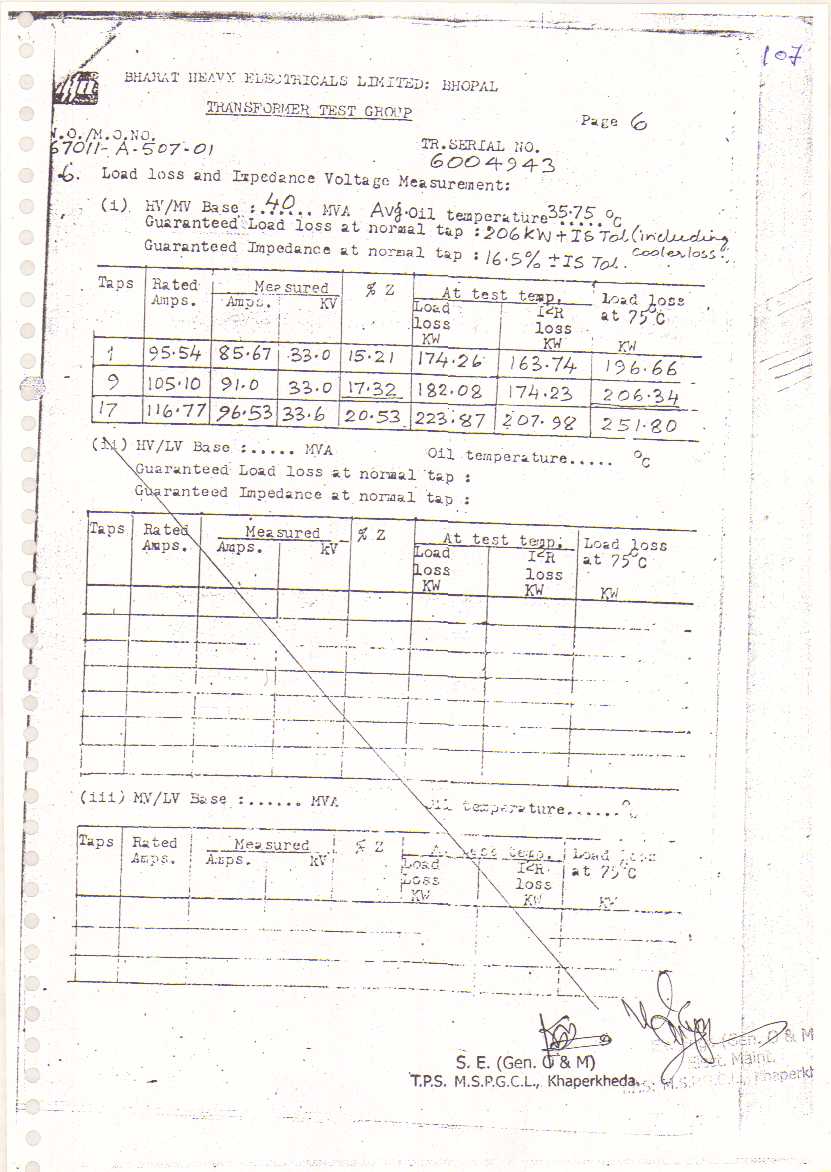 107
BHARAT HEAVY ELECTRICALS LIMITED: BHOPAL
TRANSFORMER TEST GROUP
Page 6
W.O./M.O.NO. TR.SERIAL NO.
67011-A-507-01 6004943
6. Load loss and Impedance Voltage Measurement:
(i) HV/MV Base :.40..... MVA Avg.Oil temperature 35.75 °C
Guaranteed Load loss at normal tap : 206 KW + IS Tol (including cooler loss.
Guaranteed Impedance at normal tap : 16.5% ± IS Tol.
Taps Rated Measured % Z At test temp. Load loss
Amps. Amps. KV Load I²R at 75°C
loss loss
KW KW KW
1 95.54 85.67 33.0 15.21 174.26 163.74 196.66
9 105.10 91.0 33.0 17.32 182.08 174.23 206.34
17 116.77 96.53 33.6 20.53 223.87 207.98 251.80
(ii) HV/LV Base :..... MVA Oil temperature..... °C
Guaranteed Load loss at normal tap :
Guaranteed Impedance at normal tap :
Taps Rated Measured % Z At test temp. Load loss
Amps. Amps. kV Load I²R at 75°C
loss loss
KW KW KW
(iii) MV/LV Base :...... MVA Oil temperature......°C
Taps Rated Measured % Z At test temp. Load loss
Amps. Amps. kV Load I²R at 75°C
Loss loss
KW KW KW
S. E. (Gen. O & M)
T.P.S. M.S.P.G.C.L., Khaperkheda.
(Gen. O & M
Maint.
M.S.P.G.C.L., Khaperkh